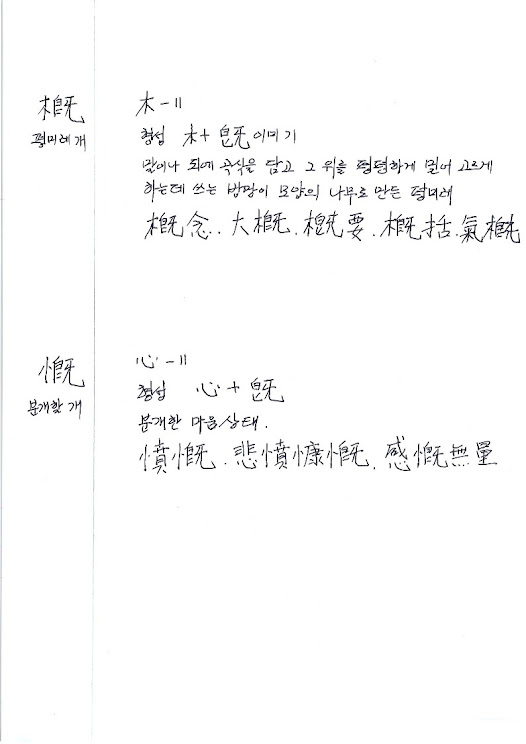 概
평미레 개
木 - 11
형성 木 + 旣 이미기
말이나 되에 곡식을 담고 그 위를 평평하게 밀어 고르게
하는데 쓰는 방망이 모양의 나무로 만든 평미레
概念. 大概. 概要. 概括. 氣概
慨
분개할 개
心 - 11
형성 心 + 旣
분개한 마음 상태.
憤慨. 悲憤慷慨. 感慨無量